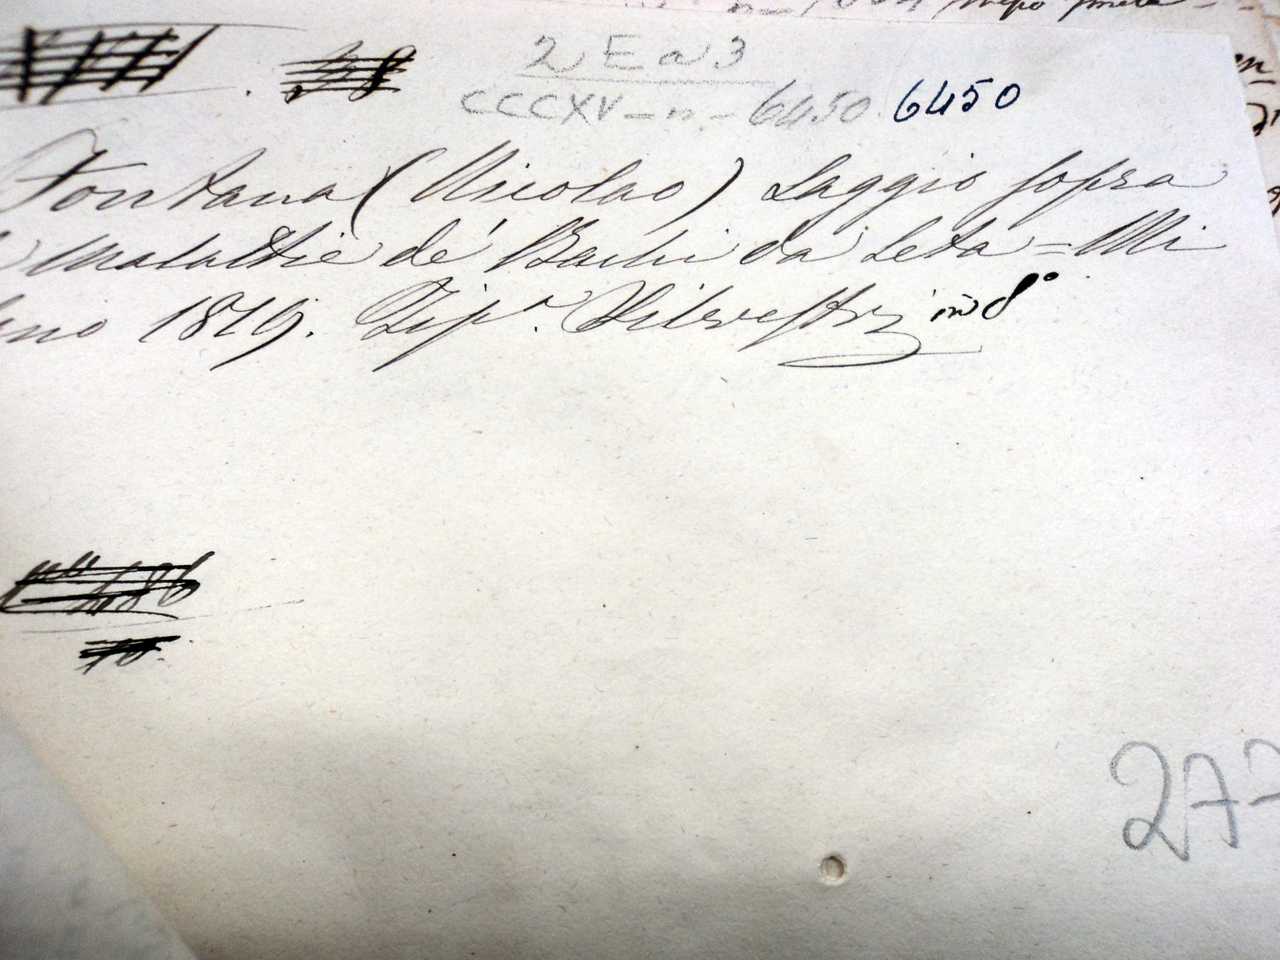 2 E a 3
CCCXV - n. - 6450 6450
Fontana (Nicolao) Saggio sopra
malattie de' Bachi da Seta = Mi
no 1819. Tip.ª Silvestri in 8°
277